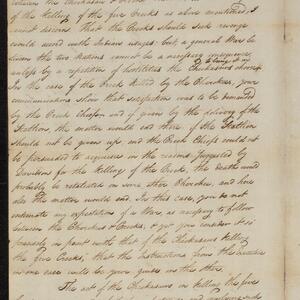 between the Chickasaws &
of the Killing of the five Creeks as above mentioned, I
cannot discern that the Creeks should seek revenge
would accord with Indian usages; but a general War be
tween the two Nations cannot be a necessary consequence
unless by a repetition of hostilities the Chickasaws
In the case of the Creek killed by the Cherokees, your
communications show that satisfaction was to be demanded
by the Creek Chiefs and if given by the delivery of the
the matter would end there. if the
should not be given up and the Creek Chiefs could not
be persuaded to acquiesce in the reasons suggested by
for the Killing of the Creek, the death would
probably be retaliated on some other Cherokee, and here
also the matter would end. In this case, you do not
intimate any expectation of a War, as necessary to follow
between the Cherokees & Creeks; & yet you consider it so
precisely in point with that of the Chickasaws killing
the five Creeks, that the Instructions from this
in one case will be your guide in the other.
The act of the Chickasaws in killing the five